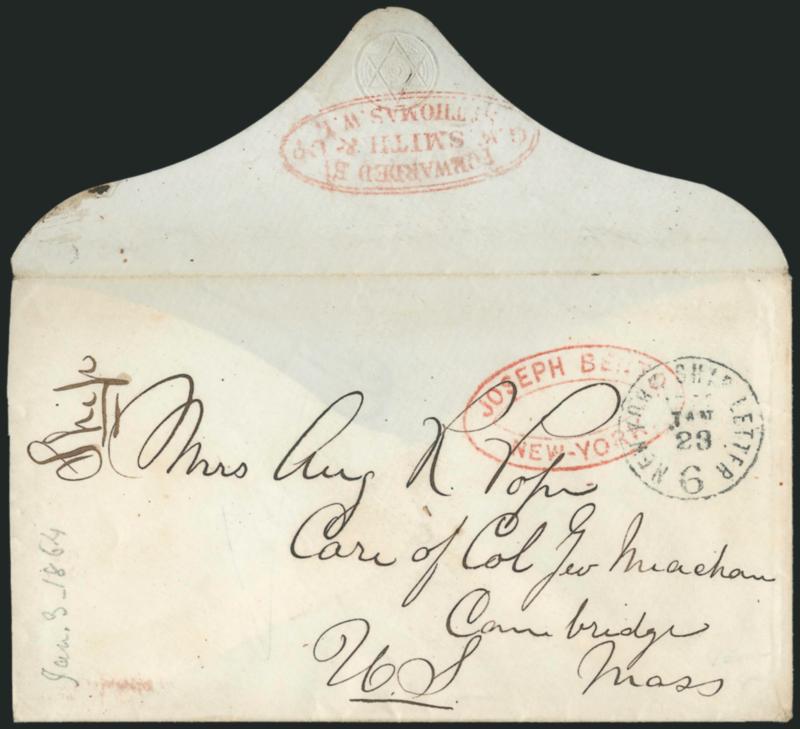 FORWARDED BY
G. W. SMITH & Co
ST THOMAS, W. I.
Ship
JOSEPH
NEW-YORK
NEW YORK SHIP LETTER
JAN
23
6
Mrs Aug R. Pope
Care of Col Geo Meacham
Cambridge
U.S. Mass
Jan. 3-1864